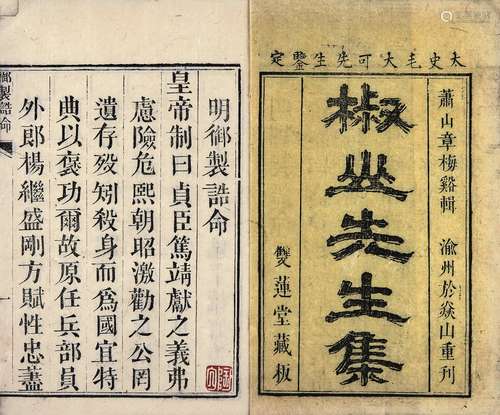 太史毛大可先生鑒定
蕭山章梅谿輯　渝州於猋山重刋
椒山先生集
雙蓮堂藏板
明御製誥命
皇帝制曰貞臣篤靖獻之義弗
慮險危熙朝昭激勸之公罔
遺存歿矧殺身而爲國宜特
典以褒功爾故原任兵部員
外郎楊繼盛剛方賦性忠藎
御製誥命